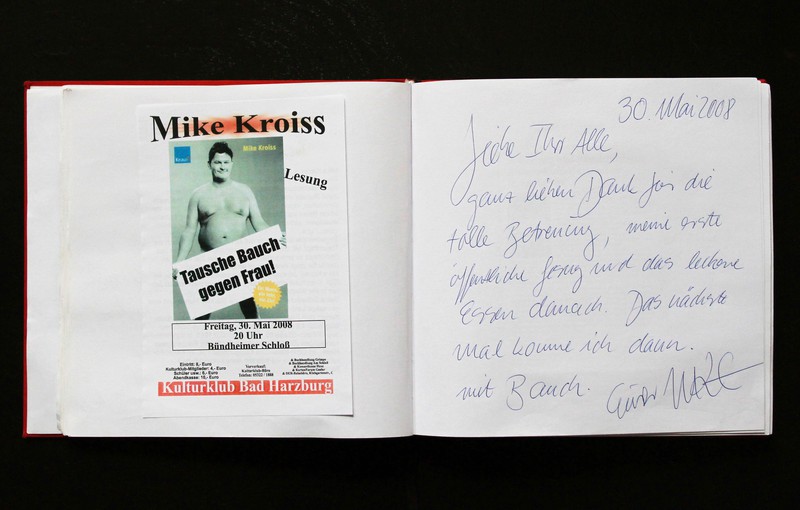 Mike Kroiss
Mike Kroiss
Lesung
Tausche Bauch
gegen Frau!
Freitag, 30. Mai 2008
20 Uhr
Bündheimer Schloß
Eintritt: 8,- Euro
Kulturklub-Mitglieder: 4,- Euro
Abendkasse: 10,- Euro
Vorverkauf:
Kulturklub-Büro
Telefon: 05322 / 1888
Kulturklub Bad Harzburg
30. Mai 2008
Liebe Ihr Alle,
ganz lieben Dank für die
tolle Betreuung, meine erste
öffentliche Lesung und das leckere
Essen danach. Das nächste
Mal komme ich dann
mit Bauch.